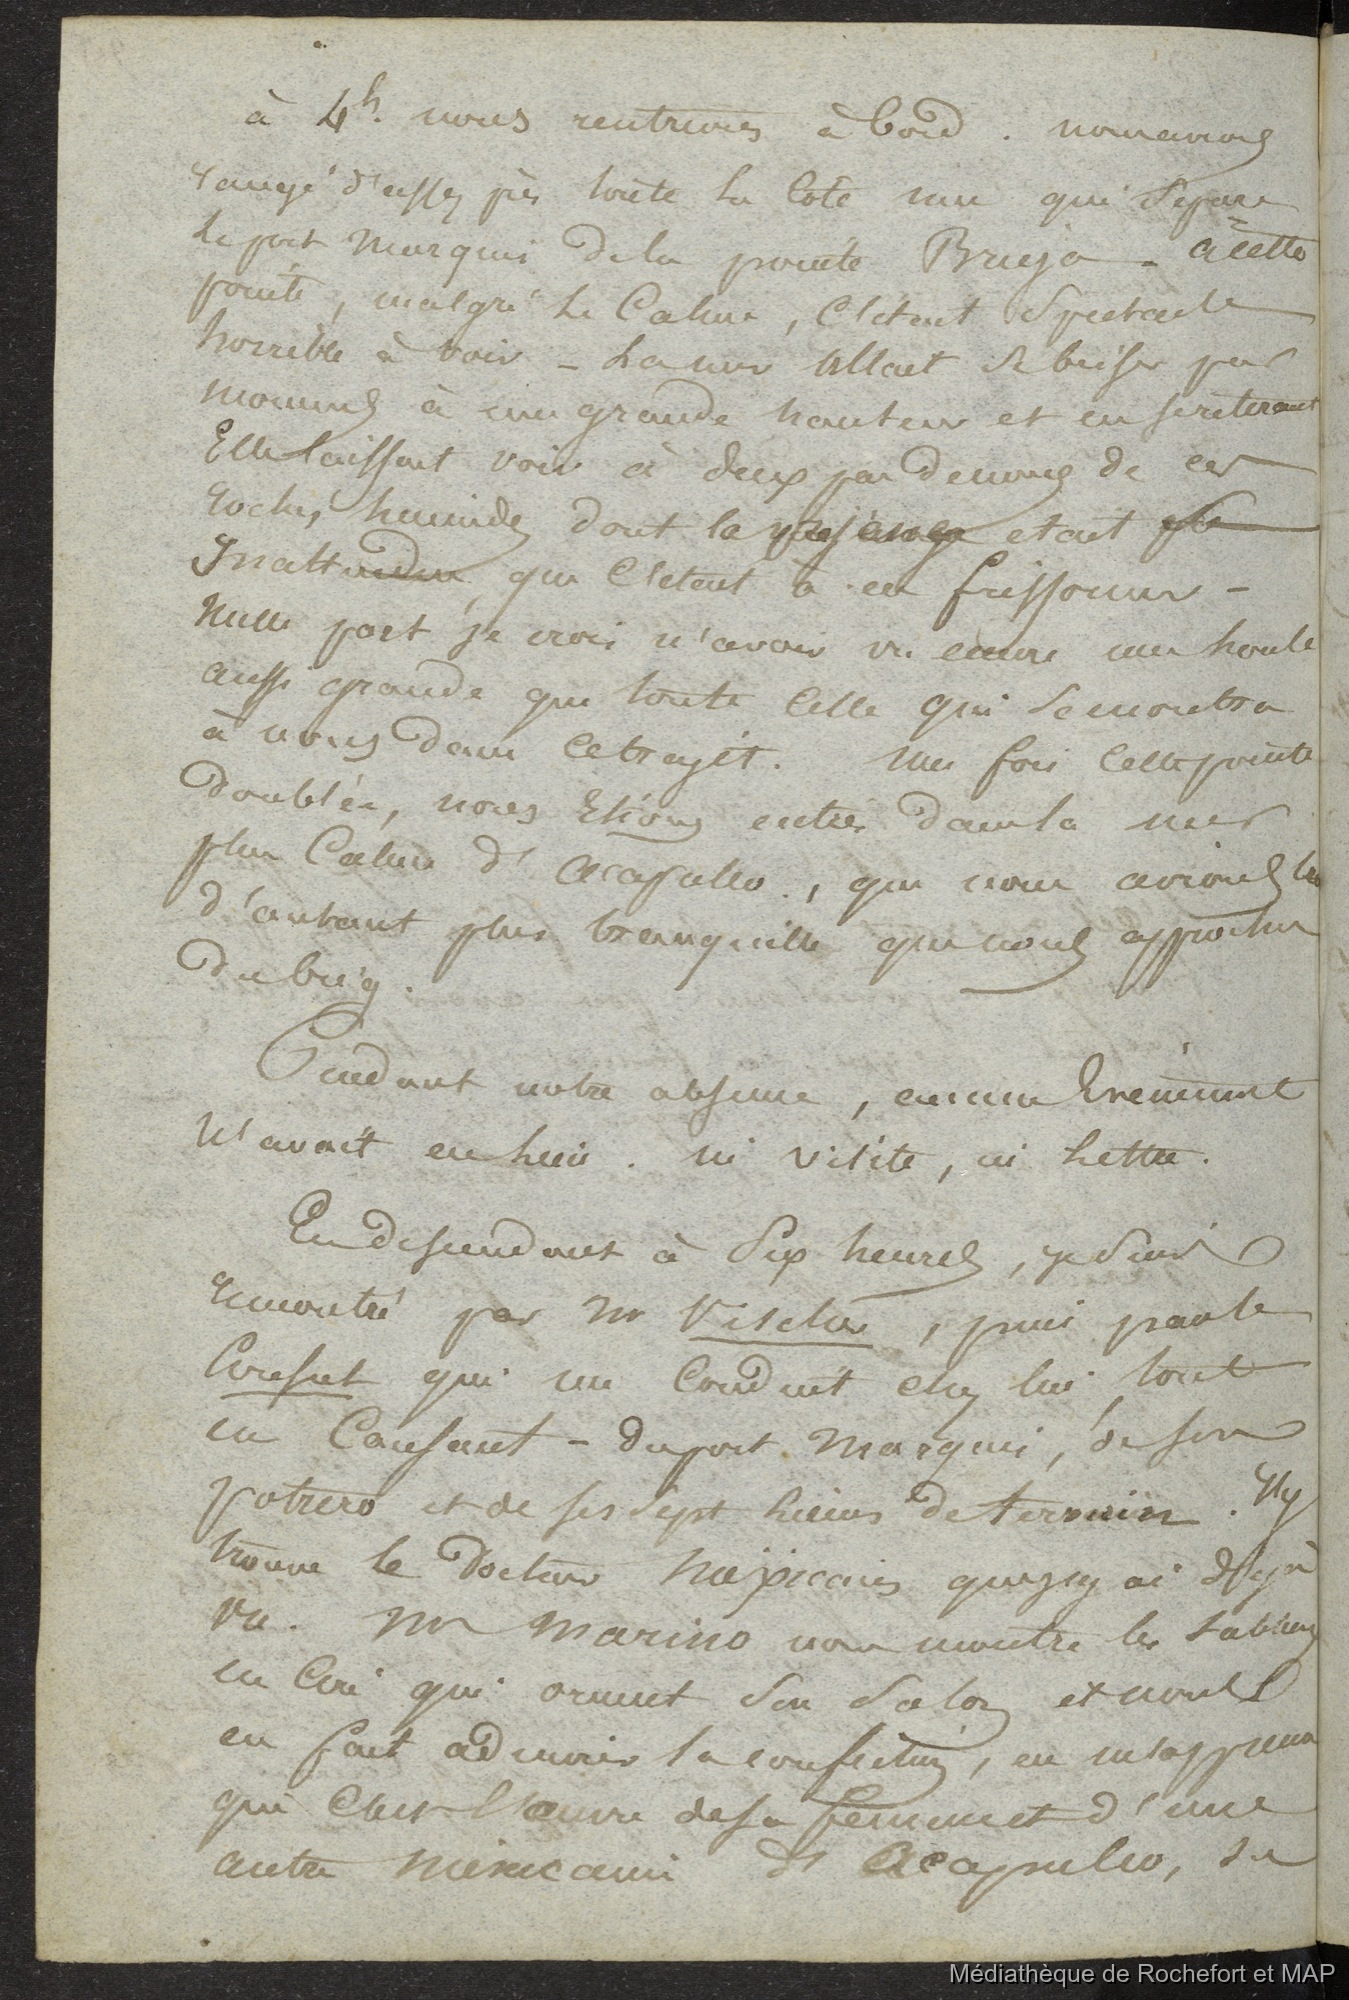 à 4h. nous rentrions à bord. nous avons
rangé d'assez près toute la côte nue qui sépare
le port Marquis de la pointe Bruja - à cette
pointe, malgré le calme, c'était spectacle
horrible à voir - La mer allait se briser par
moments à une grande hauteur et en se retirant
Elle laissait voir à deux pas de nous de ces
roches humides dont la présence était
Inattendue, que c'était à en frissonner -
Nulle part je crois n'avoir vu encore une houle
aussi grande que toute celle qui se montra
à nous dans ce trajet. Une fois cette pointe
doublée, nous étions entrés dans la mer
plus calme d'Acapulco, que nous avions
d'autant plus tranquille que nous approchions
du brig.
Pendant notre absence, aucun Evènement
N'avait eu lieu. ni visite, ni lettre.
En descendant à six heures, je suis
rencontré par Mr Vischer, puis par le
Consul qui me conduit chez lui tout
en causant - du port Marquis, de son
potrero et de ses sept lieues de terrain. J'y
trouve le Docteur Mexicain que j'y ai déjà
vu. Mr Marino nous montre les tableaux
en cire qui ornent son salon et nous
en fait admirer la confection, en m'apprenant
que c'est l'œuvre de sa femme et d'une
autre mexicaine d'Acapulco,
Médiathèque de Rochefort et MAP